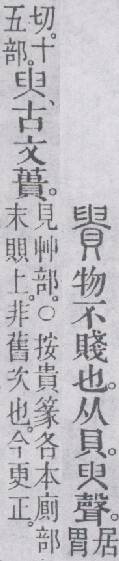 䝿物不賤也。从貝。臾聲。居
胃
切。十
五部。
臾、古文蕢。
見艸部。○按貴篆各本廁部
末賏上。非舊次也。今更正。